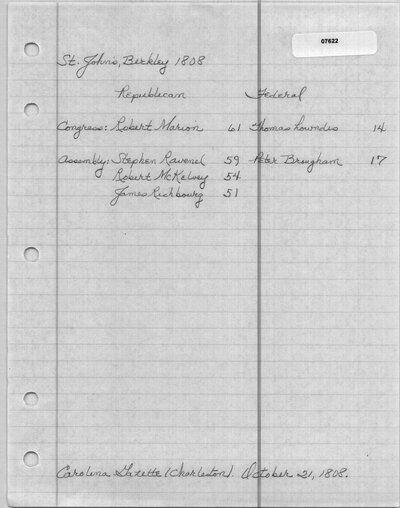 07622
St. John's, Berkley 1808
Republican Federal
Congress: Robert Marion 61 Thomas Lowndes 14
Assembly: Stephen Ravenel 59 Peter Brougham 17
Robert McKelvey 54
James Richbourg 51
Carolina Gazette (Charleston). October 21, 1808.